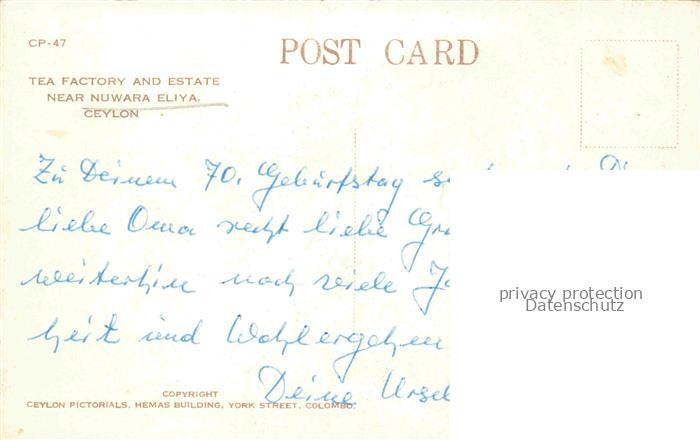 CP-47
POST CARD
TEA FACTORY AND ESTATE
NEAR NUWARA ELIYA,
CEYLON
Zu Deinem 70. Geburtstag
liebe Oma recht liebe
weiterhin noch viele
heit und Wohlergehen
Deine
privacy protection
Datenschutz
COPYRIGHT
CEYLON PICTORIALS, HEMAS BUILDING, YORK STREET, COLOMBO.